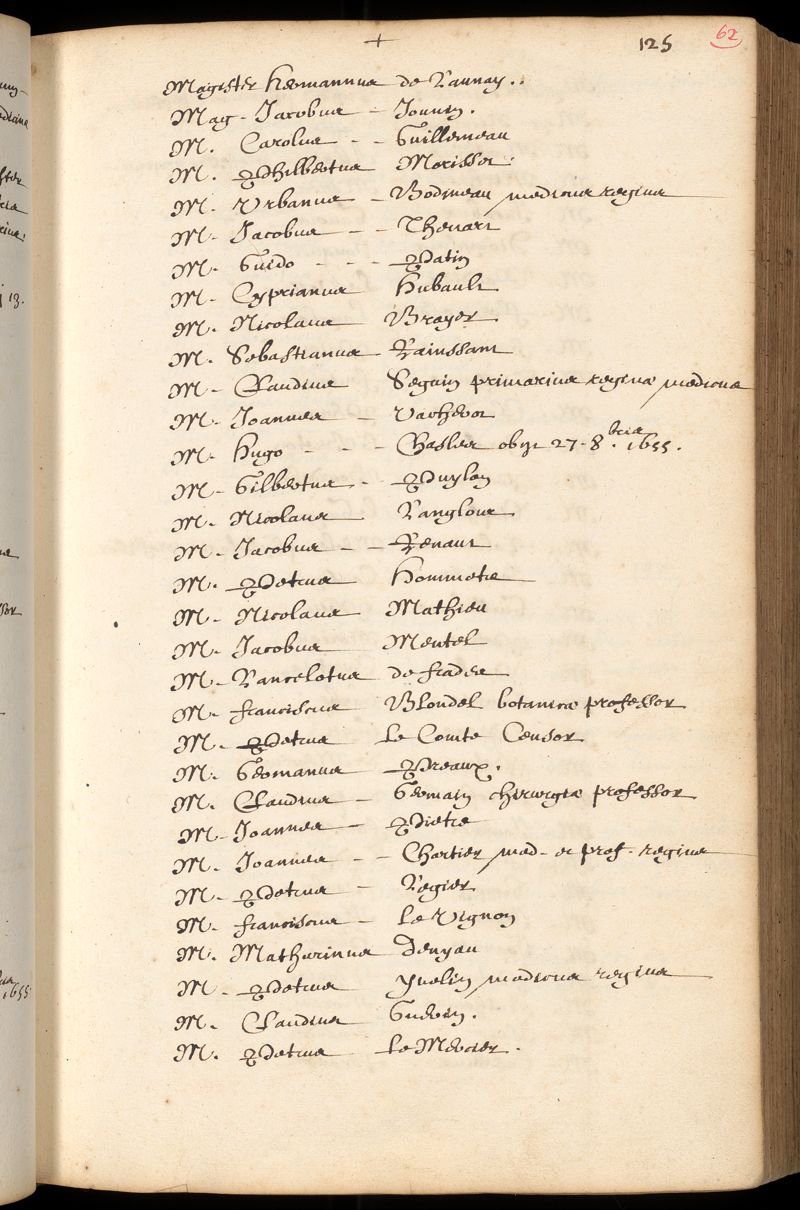 +
125
62
Magister hermannus de Launay..
Mag - Jacobus - Jouvin.
M. Carolus - - Guillemeau
M. Philbertus Morisset:
M. Urbanus - Bodineau medicus regius
M - Jacobus - - Thevart
M - Guido - - - Patin
M - Cyprianus hubault
M. Nicolaus Brayer
M. Sebastianus Rainssant
M - Claudius Seguin primarius reginæ medicus
M - Joannes - Vacherot
M - hugo - - - Chasles obijt 27 - 8.bris 1655.
M - Gilbertus - Puylon
M - Nicolaus Langlois
M - Jacobus - - Renaut
M. Petrus hommetz
M - Nicolaus Mathieu
M - Jacobus Mentel
M - Lancelotus de frades
M - franciscus Blondel botanicæ professor
M - Petrus le Comte Censor
M - Germanus Preaux.
M. Claudius - Germain chirurgiæ professor
M - Joannes - Pietre
M - Joannes - - Chartier med - et prof - regius
M - Petrus - Regier
M - franciscus - le Vignon
M. Mathurinus Denyau
M - Petrus Yvelin medicus regius
M - Claudius Guerin.
M - Petrus le Mercier.